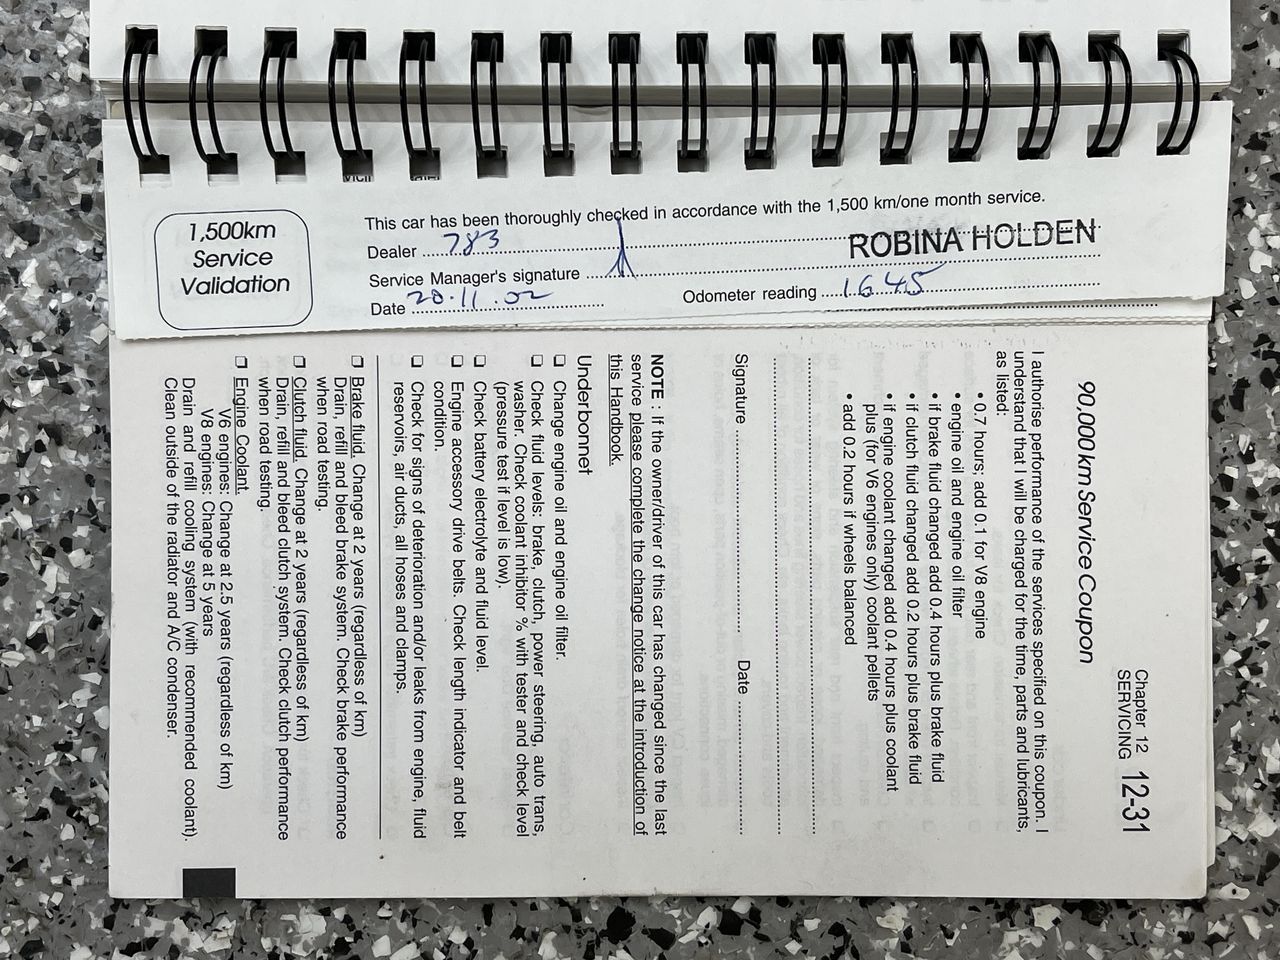 1,500km
Service
Validation
This car has been thoroughly checked in accordance with the 1,500 km/one month service.
Dealer 783
ROBINA HOLDEN
Service Manager's signature
Date 20.11.02
Odometer reading 1645
Chapter 12
SERVICING 12-31
90,000 km Service Coupon
I authorise performance of the services specified on this coupon. I
understand that I will be charged for the time, parts and lubricants,
as listed:
• 0.7 hours; add 0.1 for V8 engine
• engine oil and engine oil filter
• if brake fluid changed add 0.4 hours plus brake fluid
• if clutch fluid changed add 0.2 hours plus brake fluid
• if engine coolant changed add 0.4 hours plus coolant
plus (for V6 engines only) coolant pellets
• add 0.2 hours if wheels balanced
Signature Date
NOTE : If the owner/driver of this car has changed since the last
service please complete the change notice at the introduction of
this Handbook.
Underbonnet
❑ Change engine oil and engine oil filter.
❑ Check fluid levels: brake, clutch, power steering, auto trans,
washer. Check coolant inhibitor % with tester and check level
(pressure test if level is low).
❑ Check battery electrolyte and fluid level.
❑ Engine accessory drive belts. Check length indicator and belt
condition.
❑ Check for signs of deterioration and/or leaks from engine, fluid
reservoirs, air ducts, all hoses and clamps.
❑ Brake fluid. Change at 2 years (regardless of km)
Drain, refill and bleed brake system. Check brake performance
when road testing.
❑ Clutch fluid. Change at 2 years (regardless of km)
Drain, refill and bleed clutch system. Check clutch performance
when road testing.
❑ Engine Coolant.
V6 engines: Change at 2.5 years (regardless of km)
V8 engines: Change at 5 years
Drain and refill cooling system (with recommended coolant).
Clean outside of the radiator and A/C condenser.